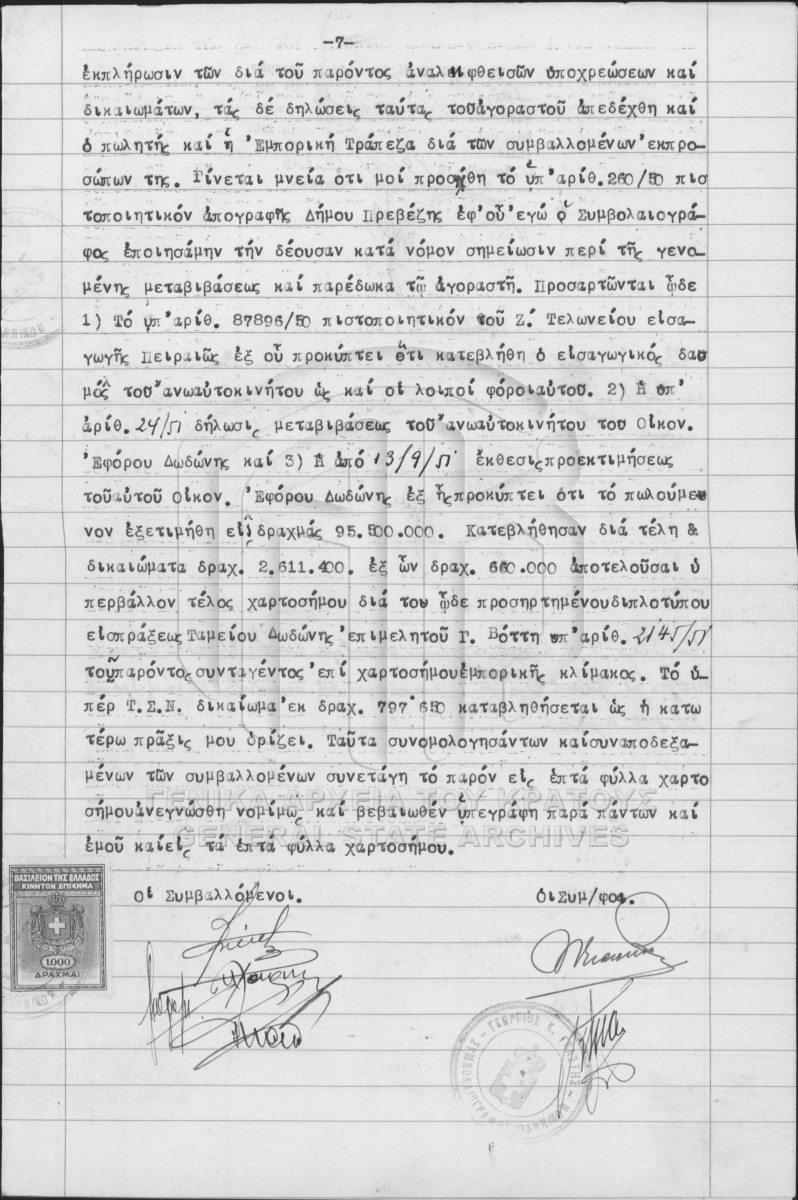 -7-
ἐκπλήρωσιν τῶν διά τοῦ παρόντος ἀναλειφθεισῶν ὑποχρεώσεων καί
δικαιωμάτων, τάς δέ δηλώσεις ταύτας τοῦἀγοραστοῦ ἀπεδέχθη καί
ὁ πωλητής καί ἡ Ἐμπορική Τράπεζα διά τῶν συμβαλλομένων ἐκπρο-
σώπων της. Γίνεται μνεία ὅτι μοί προσήχθη τό ὑπ'ἀριθ.260/50 πισ
τοποιητικόν ἀπογραφῆς Δήμου Πρεβέζης ἐφ'οὗ ἐγώ ὁ Συμβολαιογρά-
φος ἐποιησάμην τήν δέουσαν κατά νόμον σημείωσιν περί τῆς γενο-
μένης μεταβιβάσεως καί παρέδωκα τῷ ἀγοραστῇ. Προσαρτῶνται ὧδε
1) Τό ὑπ'ἀριθ. 87896/50 πιστοποιητικόν τοῦ Ζ! Τελωνείου εἰσα-
γωγῆς Πειραιῶς ἐξ οὗ προκύπτει ὅτι κατεβλήθη ὁ εἰσαγωγικός δασ
μός τοῦ ἀνωαὐτοκινήτου ὡς καί οἱ λοιποί φόροιαὐτοῦ. 2) Η ὑπ'
ἀριθ. 24/51 δήλωσις μεταβιβάσεως τοῦ ἀνωαὐτοκινήτου τοῦ Οἰκον.
Ἐφόρου Δωδώνης καί 3) Η ἀπό 13/9/51 ἐκθεσιςπροεκτιμήσεως
τοῦαὐτοῦ Οἰκον. Ἐφόρου Δωδώνης ἐξ ἧςπροκύπτει ὅτι τό πωλούμε
νον ἐξετιμήθη εἰς δραχμάς 95.500.000. Κατεβλήθησαν διά τέλη &
δικαιώματα δραχ. 2.611.400. ἐξ ὧν δραχ. 660.000 ἀποτελοῦσαι ὑ
περβάλλον τέλος χαρτοσήμου διά τοῦ ὧδε προσηρτημένουδιπλοτύπου
εἰσπράξεως Ταμείου Δωδώνης ἐπιμελητοῦ Γ. Βόττη ὑπ'ἀριθ. 2145/51
τοῦπαρόντοςσυνταγέντος ἐπί χαρτοσήμουἐμπορικῆς κλίμακος. Τό ὑ-
πέρ Τ.Σ.Ν. δικαίωμα ἐκ δραχ. 797 650 καταβληθήσεται ὡς ἡ κατω
τέρω πρᾶξις μου ὁρίζει. Ταῦτα συνομολογησάντων καίσυναποδεξα-
μένων τῶν συμβαλλομένων συνετάγη τό παρόν εἰς ἑπτά φύλλα χαρτο
σήμουἀνεγνώσθη νομίμως καί βεβαιωθέν ὑπεγράφη παρά πάντων καί
ἐμοῦ καίεἰς τά ἑπτά φύλλα χαρτοσήμου.
ΓΕΝΙΚΑ ΑΡΧΕΙΑ ΤΟΥ ΚΡΑΤΟΥΣ
GENERAL STATE ARCHIVES
Οἱ Συμβαλλόμενοι. ὁιΣυμ/φοι.
ΒΑΣΙΛΕΙΟΝ ΤΗΣ ΕΛΛΑΔΟΣ
ΚΙΝΗΤΟΝ ΕΠΙΣΗΜΑ
1.000
ΔΡΑΧΜΑΙ
ΓΕΩΡΓΙΟΣ Κ.